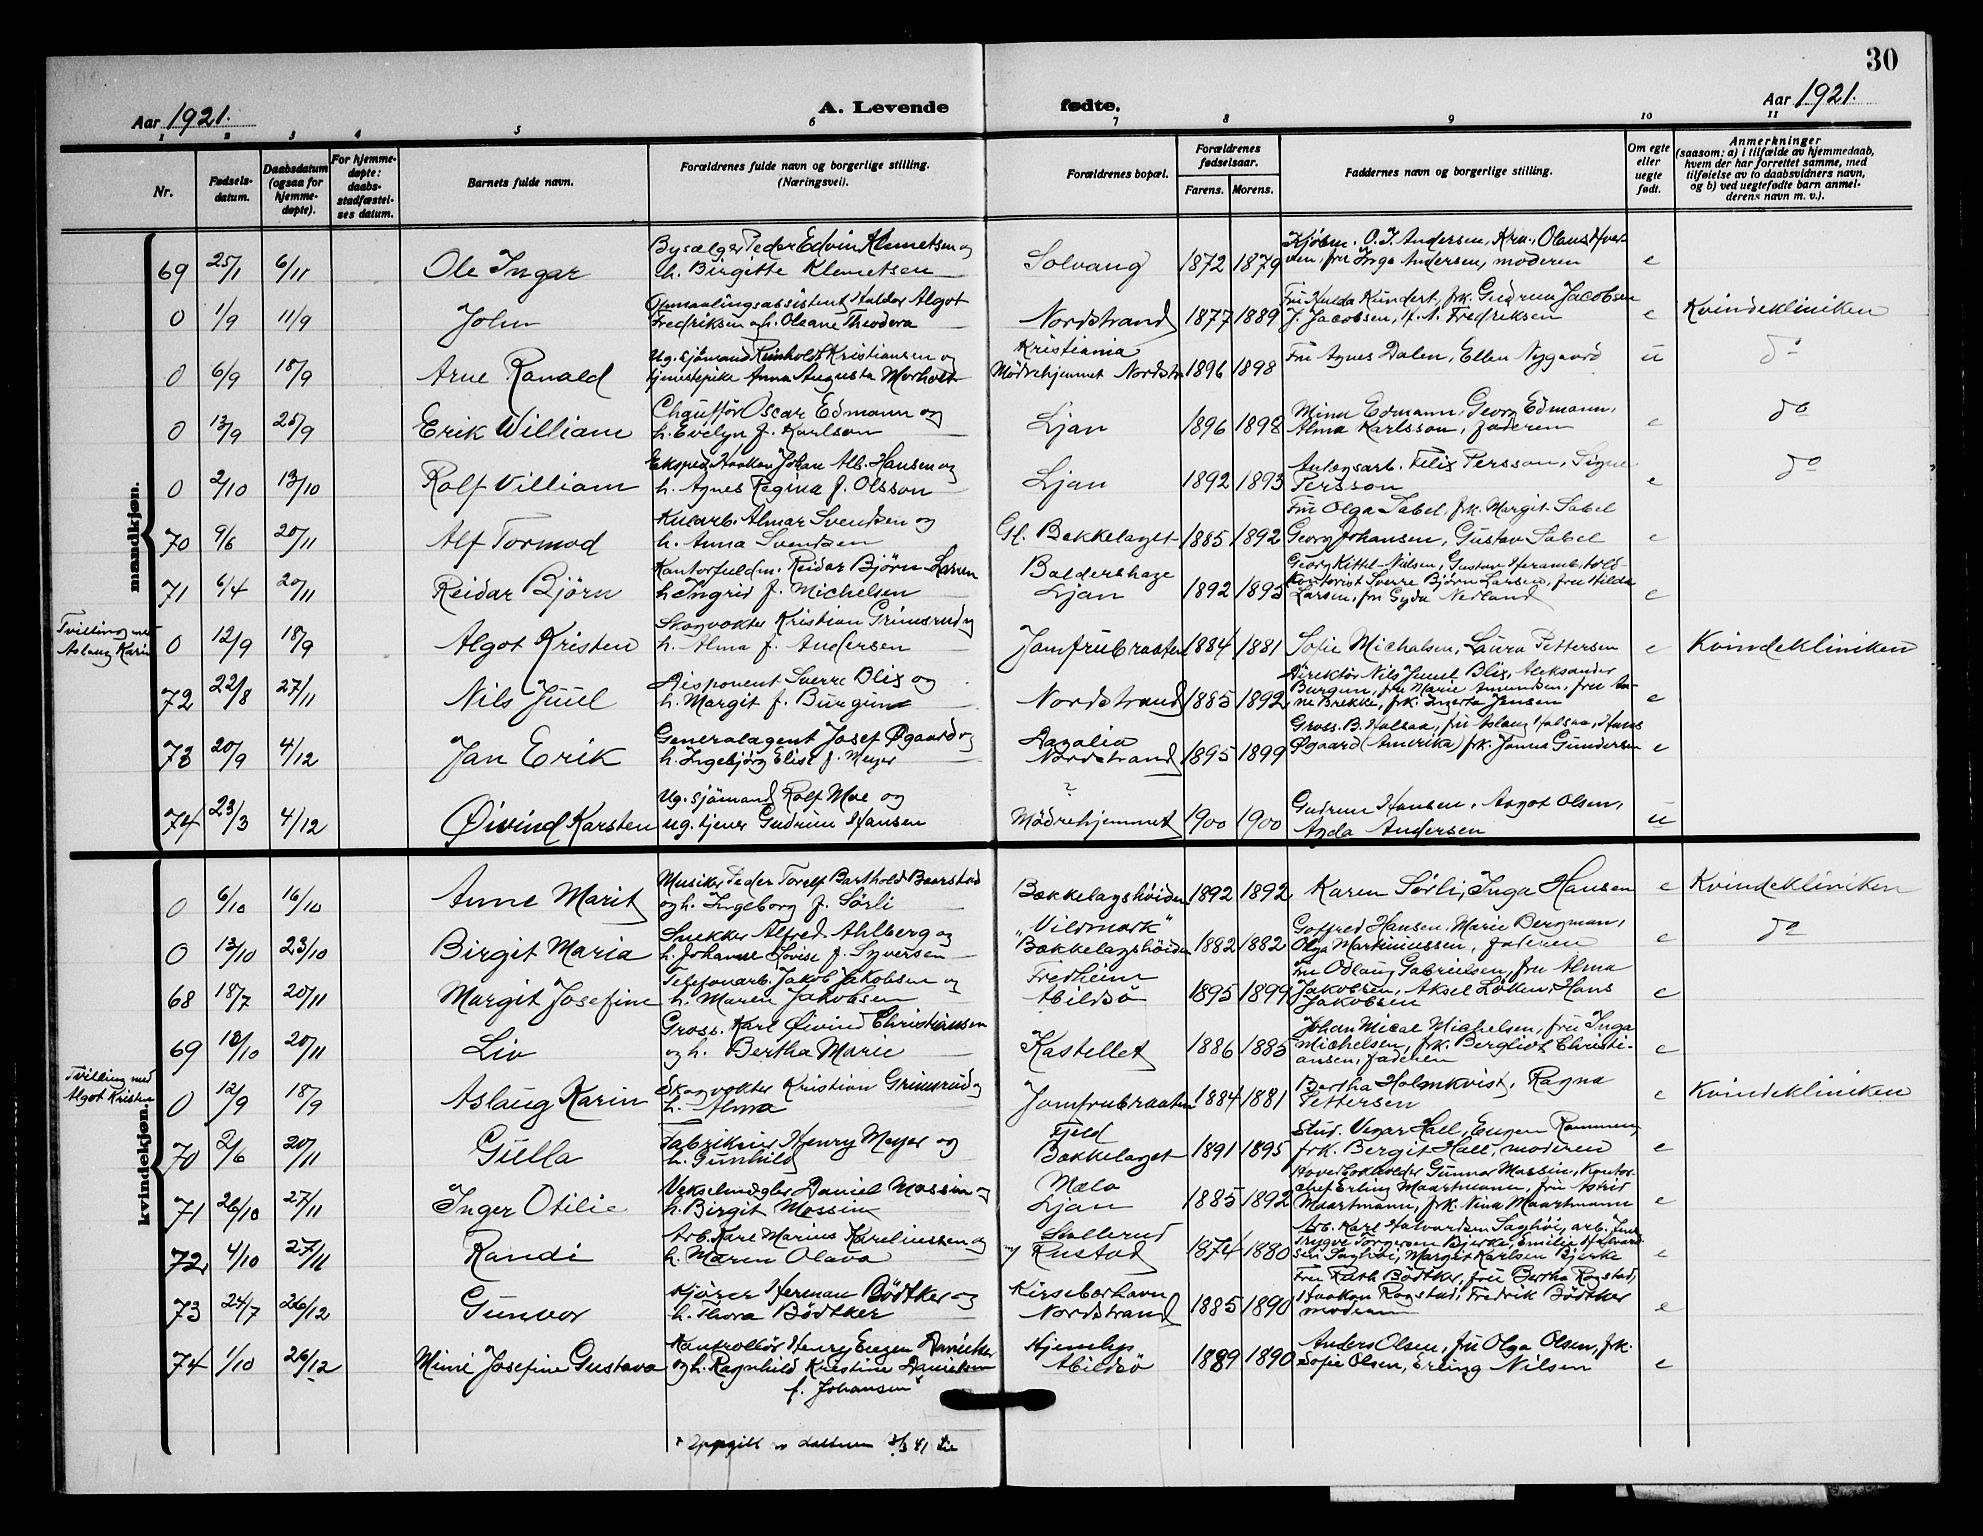 30
Aar 1921.
A. Levende fødte.
Aar 1921.
1 2 3 4 5 6 7 8 9 10 11
Nr.
Fødsels-
datum.
Daabsdatum
(ogsaa for
hjemme-
døpte).
For hjemme-
døpte:
daabs-
stadfæstel-
ses datum.
Barnets fulde navn.
Forældrenes fulde navn og borgerlige stilling.
(Næringsvei).
Forældrenes bopæl.
Forældrenes
fødselsaar.
Farens. Morens.
Faddernes navn og borgerlige stilling.
Om egte
eller
uegte
født.
Anmerkninger
(saasom: a) i tilfælde av hjemmedaab,
hvem der har forrettet samme, med
tilføielse av to daabsvidners navn,
og b) ved uegtefødte barn anmel-
derens navn m. v.).
mandkjøn.
Bysælger Peder Edvin Klemetsen og
h. Birgitte Klemetsen
69 25/1 6/11 Ole Ingar Solvang 1872 1879
Kjøbm. O. J. Andersen,
fru Inga Andersen, moderen e
Opmaalingsassistent Haldor Algot
Fredriksen og h. Oleane Theodora
0 1/9 11/9 John Nordstrand 1877 1889
Fru Hulda Kundert, frk. Gudrun Jacobsen
J. Jacobsen, H. N. Fredriksen e Kvindekliniken
Ug. sjömand Reinholdt Kristiansen og
tjenestepike Anna Augusta Morholt
0 6/9 18/9 Arne Ranald
Kristiania
Mödrehjemmet Nordstr. 1896 1898
Fru Agnes Dalen, Ellen Nygaard u do
Chauffør Oscar Edmann og
h. Evelyn f. Karlson
0 13/9 25/9 Erik William Ljan 1896 1898
Minn Edmann, Georg Edmann,
Alma Karlsson, faderen e do
Eksped. Haakon Johan Alb. Hansen og
h. Agnes Regina f. Olsson
0 2/10 13/10 Rolf Villiam Ljan 1892 1893
Anlægsarb. Felix Persson, Signe
Persson e do
Kularb. Almar Svendsen og
h. Anna Svendsen
70 9/6 20/11 Alf Tormod Gl. Bækkelaget 1885 1892
Fru Olga Sabel, frk. Margit Sabel
Georg Johansen, Gustav Sabel e
Kontorfuldm. Reidar Bjørn Larsen
h. Ingrid f. Michelsen
71 6/4 20/11 Reidar Björn
Baldershage
Ljan 1892 1893
Georg Kittel Nielsen, Gustav
kontorist Sverre Björn Larsen, fru Hilda
Larsen, fru Gyda Nedland e
Tvilling med
Aslaug Karin
Skogvokter Kristian Grimsrud og
h. Alma f. Andersen
0 12/9 18/9 Algot Kristen Jomfrubraaten 1884 1881
Sofie Michalsen, Laura Pettersen e Kvindekliniken
Disponent Sverre Blix og
h. Margit f. Burgun
72 22/8 27/11 Nils Juul Nordstrand 1885 1892
Direktör Nils Juuel Blix, Aleksander
Burgun, fru Marie Amundsen, fru An-
ne Brekke, frk. Ingerta Jensen e
Generalagent Josef Øgaard og
h. Ingebjörg Elise f. Meyer
73 20/9 4/12 Jan Erik
Nordstrand 1895 1899
Gross. B. Halsaa, fru Aslaug Halsaa, Hans
Øgaard (Amerika) frk. Janna Gundersen e
Ug. sjömand Rolf Moe og
ug. tjener Gudrun Hansen
74 23/3 4/12 Öivind Karsten
?
Mödrehjemmet 1900 1900
Gudrun Hansen, Aagot Olsen,
Agda Andersen u
kvindekjøn.
Musiker Peder Torolf Barthold Baarstad
og h. Ingeborg f. Sörli
0 6/10 16/10 Anne Marit Bækkelagshöiden 1892 1892
Karen Sörli, Inga Hansen e Kvindekliniken
Snekker Alfred Ahlberg og
h. Johanne Lovise f. Syversen
0 13/10 23/10 Birgit Maria
"Vildmark"
Bækkelagshöiden 1882 1882
Gotfred Hansen, Marie Bergman,
Olga Martiniussen, faderen e do
Telefonarb. Jakob Jakobsen og
h. Maren Jakobsen
68 18/7 20/11 Margit Josefine
Fredheim
Abildsö 1895 1899
Fru Odlaug Gabrielsen, fru Alma
Jakobsen, Aksel Löken, Hans
Jakobsen e
Gross. Karl Öivind Christiansen
og h. Bertha Marie
69 12/10 20/11 Liv Kastellet 1886 1885
Johan Micael Michelsen, fru Inga
Michelsen, frk. Bergliot Christi-
ansen, faderen e
Tvilling med
Algot Kristen
Skogvokter Kristian Grimsrud og
h. Alma
0 12/9 18/9 Aslaug Karin Jomfrubraaten 1884 1881
Bertha Holmkvist, Ragna
Pettersen e Kvindekliniken
Fabrikeier Henry Meyer og
h. Gunhild
70 2/6 20/11 Gulla
Fjeld
Bækkelaget 1891 1895
Stud. Vegar Hall, Eugen Rommen,
frk. Bergit Hall, moderen e
Vekselmægler Daniel Mossin og
h. Birgit Mossin
71 26/10 27/11 Inger Otilie
Mælo
Ljan 1885 1892
Hovedbokholder Gunnar Mossin, Kontor-
chef Erling Maartmann, fru Astrid
Maartmann, frk. Nina Maartmann e
Arb. Karl Marius Kareliussen og
h. Maren Olava
72 4/10 27/11 Randi
Rustad 1874 1880
Arb. Karl Halvardsen Saghöi, arb.
Trygve Torgersen Bjerke, Emilie Halvard-
sen Saghöi, Margit Karlsen Bjerke e
Kjører Herman Bödtker og
h. Thora Bödtker
73 24/7 26/12 Gunvor
Kirsebærhavn
Nordstrand 1885 1890
Fru Ruth Bödtker, fru Bertha Rogstad,
Haakon Rogstad, Fredrik Bödtker
moderen e
Kontrollör Henry Eugen
og h. Ragnhild Kristine Danielsen
f. Johansen
74 1/10 26/12 Mimi Josefine Gustava
Hjemly
Abildsö 1889 1890
Anders Olsen, fru Olga Olsen, frk.
Sofie Olsen, Erling Nilsen e